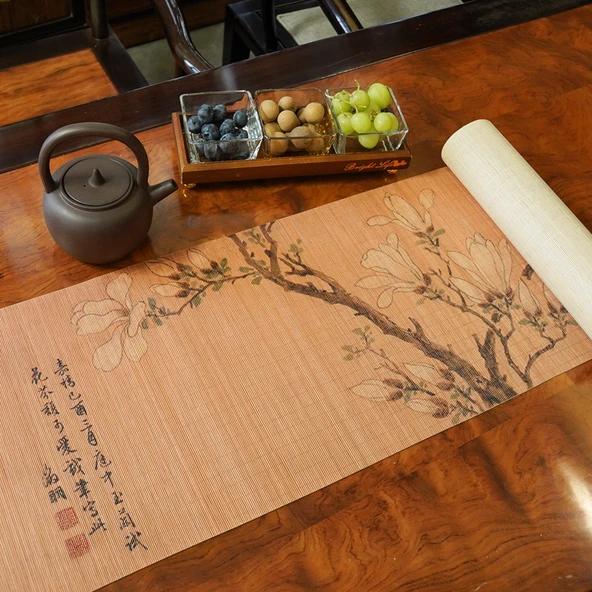 嘉靖己酉三月庭中玉蘭試
花芬馥可愛戲筆寫此
徵明
Bright